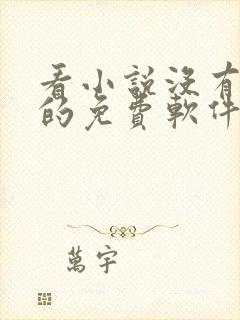 看小說沒有
的免費軟件
萬宇